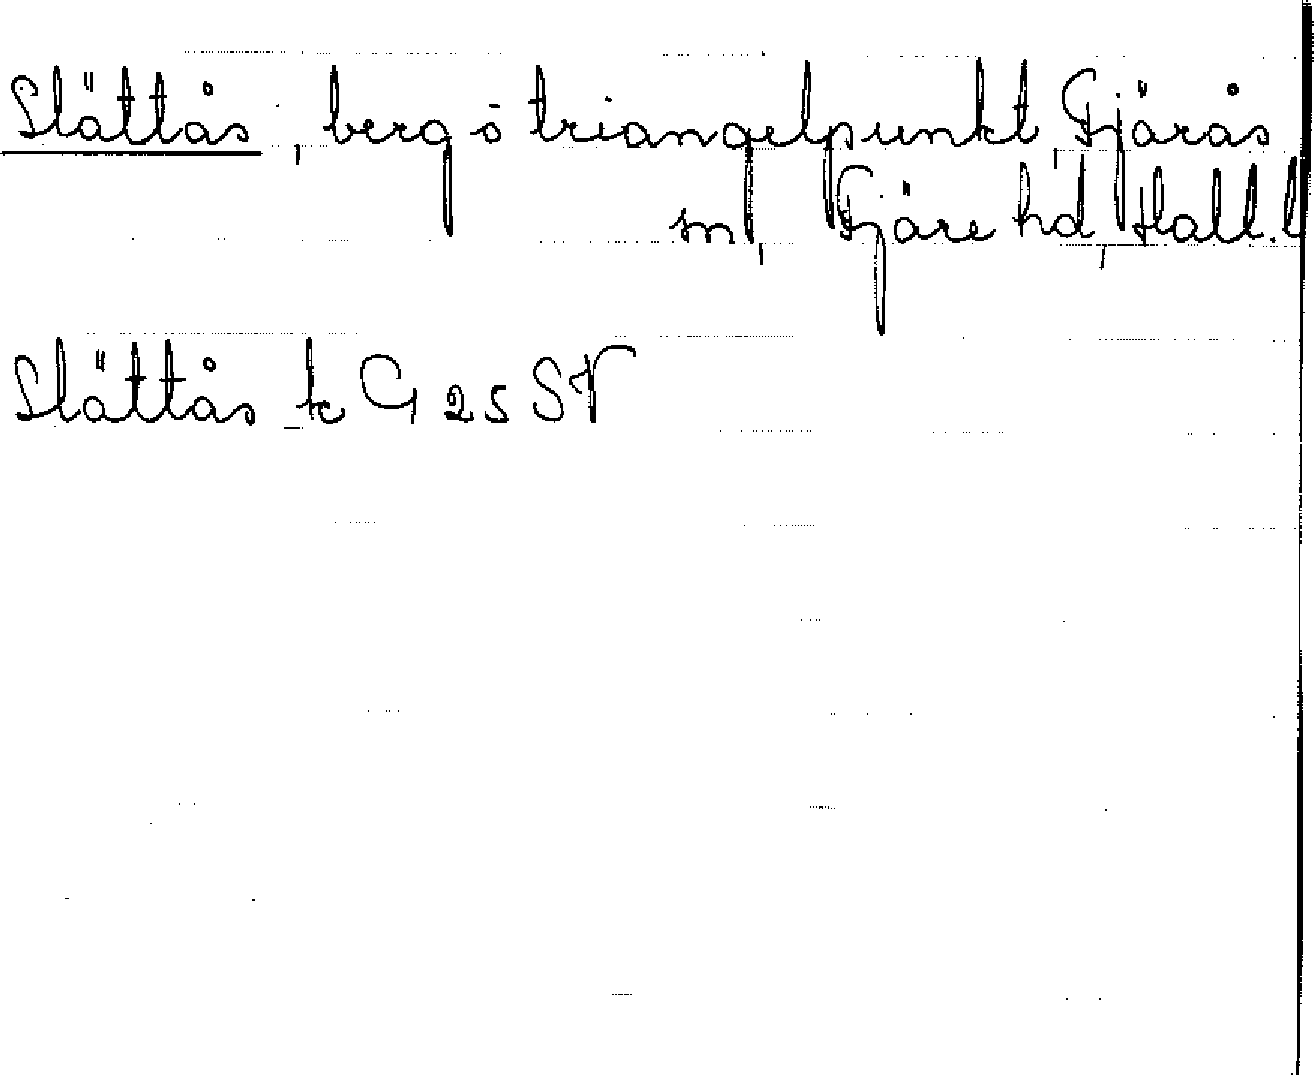 Slättås, berg o triangelpunkt, Fjärås
sn, Fjäre hd, Hall. l
Slättås tc G 25 SV